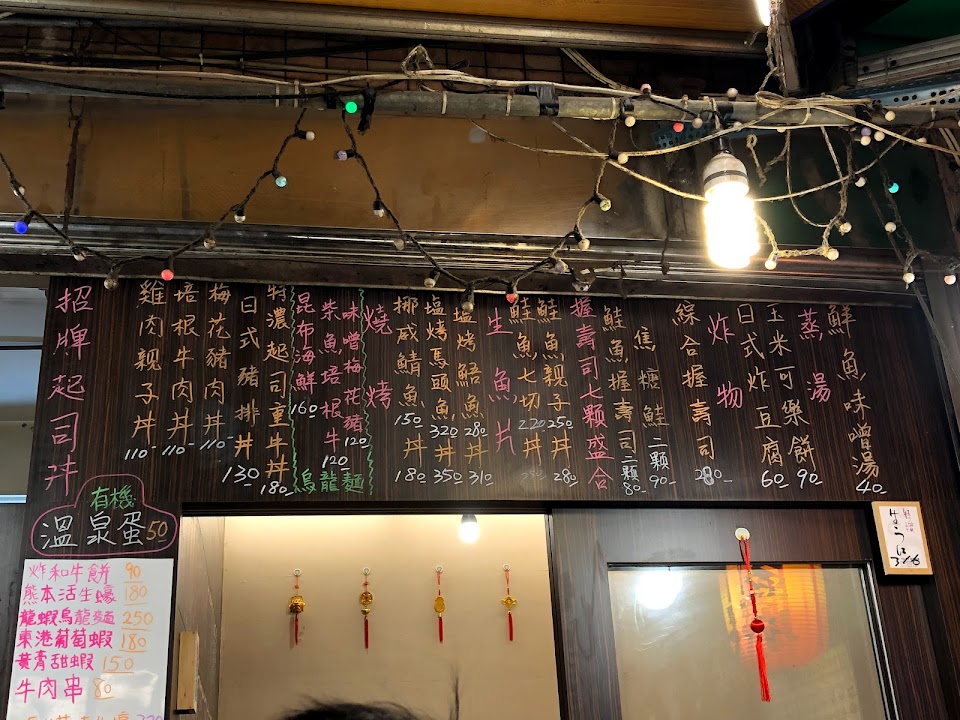 鮮魚味噌湯 40
蒸.湯
玉米可樂餅 90
日式炸豆腐 60
炸物
綜合握壽司 280
焦糖鮭 二顆 90
鮭魚握壽司 二顆 80
握壽司七顆盛合
鮭魚親子丼 250 280
鮭魚七切丼 220
生魚片
鹽烤鯃魚丼 280 310
塩烤馬頭魚丼 320 350
挪威鯖魚丼 150 180
燒烤
味噌梅花豬 120
柴魚培根牛 120
昆布海鮮 160
烏龍麵
特濃起司重牛丼 180
日式豬排丼 130
梅花豬肉丼 110
培根牛肉丼 110
雞肉親子丼 110
招牌起司丼
有機
溫泉蛋 50
炸和牛餅 90
熊本活生蠔 180
龍蝦烏龍麵 250
東港葡萄蝦 180
黃膏甜蝦 150
牛肉串 80